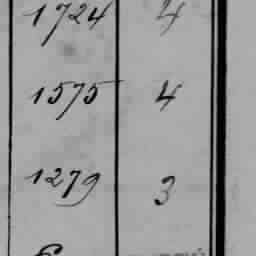 1724 4
1575 4
1279 3